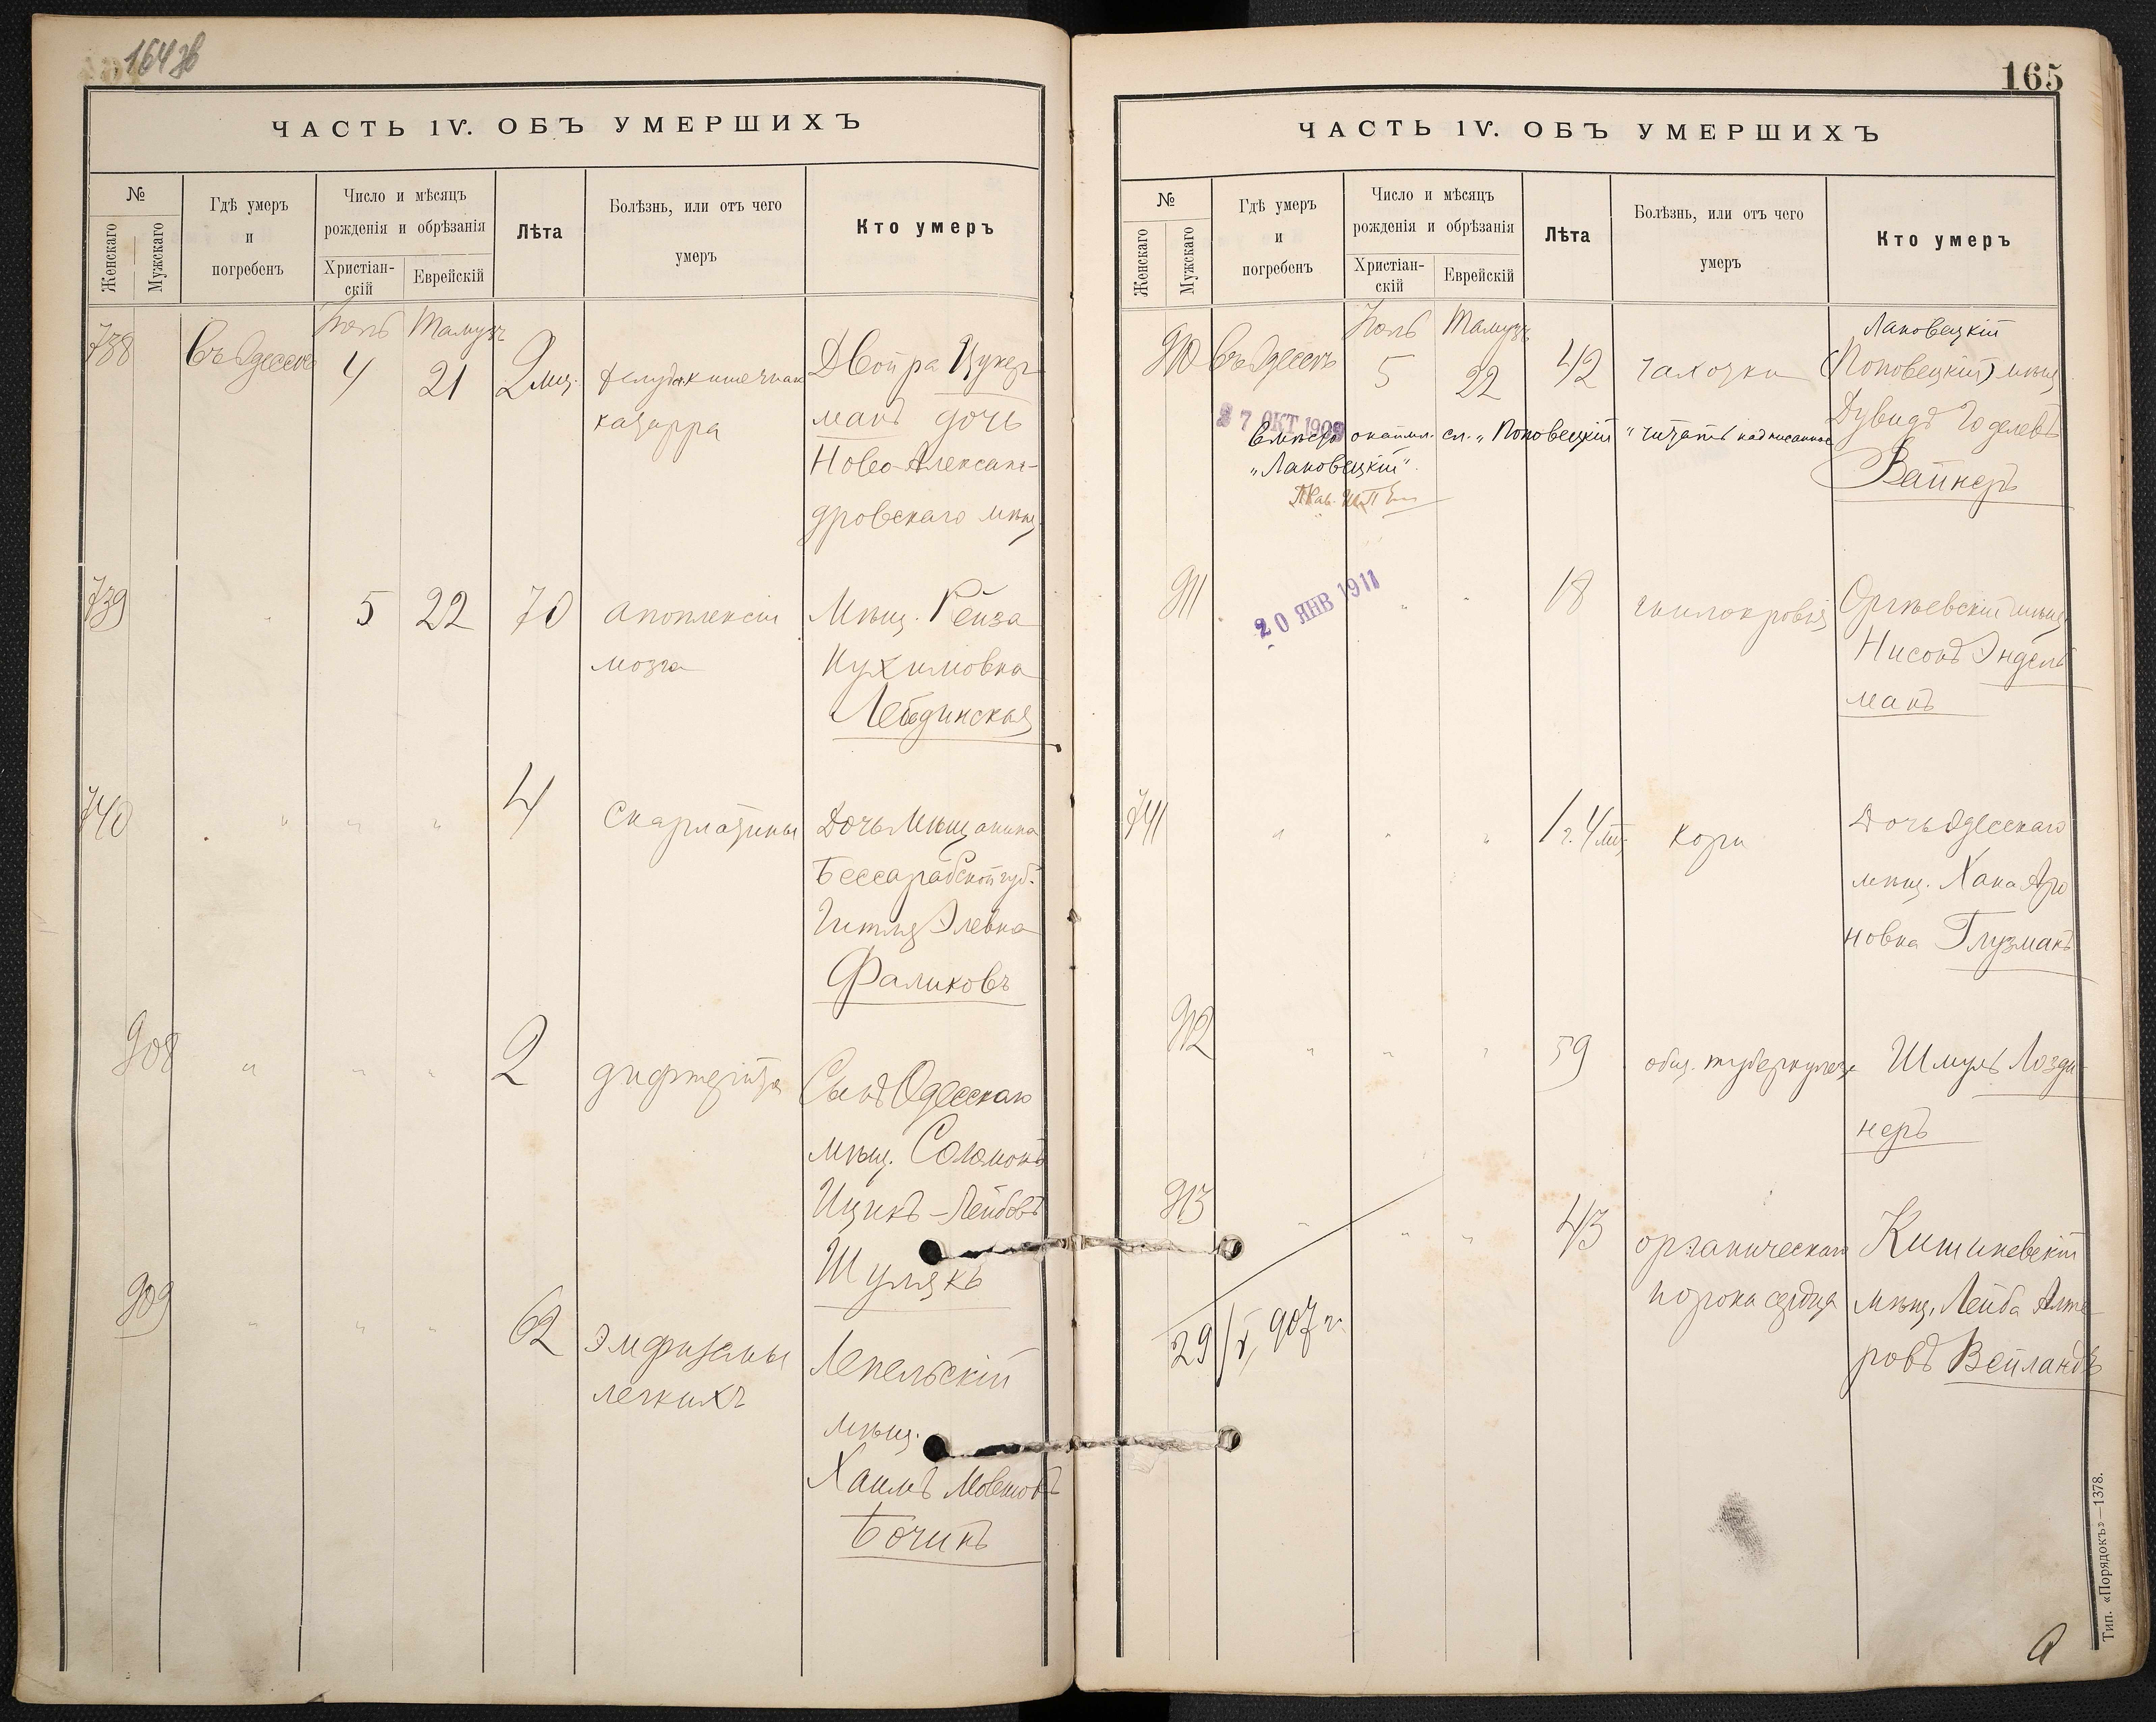 164 об
ЧАСТЬ IV. ОБЪ УМЕРШИХЪ
№
Женскаго
Мужскаго
Гдѣ умеръ
и
погребенъ
Число и мѣсяцъ
рожденія и обрѣзанія
Христіан-
скій
Еврейскій
Лѣта
Болѣзнь, или отъ чего
умеръ
Кто умеръ
Іюль Тамузъ
738 Въ Одессѣ 4 21 2 мѣс. желудочно-кишечнаго Двойра Цукер
катарра манъ дочь
Ново-Александ-
дровскаго мѣщ.
739 " 5 22 70 апоплексіи Мѣщ. Рейза
мозга Нухимовна
Лебединская
740 " " " 4 скарлатины Дочь Мѣщанина
Бессарабской губ.
Гитля Элевна
Фаликовъ
908 " " " 2 дифтерита Сынъ Одесскаго
мѣщ. Соломонъ
Ицикъ-Лейбовъ
Шулякъ
909 " " " 62 эмфиземы Лепельскій
легкихъ мѣщ.
Хаимъ Мовшовъ
Бочинъ
165
ЧАСТЬ IV. ОБЪ УМЕРШИХЪ
№
Женскаго
Мужскаго
Гдѣ умеръ
и
погребенъ
Число и мѣсяцъ
рожденія и обрѣзанія
Христіан-
скій
Еврейскій
Лѣта
Болѣзнь, или отъ чего
умеръ
Кто умеръ
Іюль Тамузъ Лановецкій
910 Въ Одессѣ 5 22 42 чахотки (Поповецкій) мѣщ
27 ОКТ 1909 Дувидъ Годелевъ
Вмѣсто сл. "Поповецкій" читать надписанное
"Лановецкій". Вайнеръ
911 " " 18 бѣлокровія Оргѣевскій мѣщ
20 ЯНВ 1911 Нисонъ Эндель
манъ
741 " " " 1 г. 4 мѣс. кори Дочь Одесскаго
мѣщ. Хана Аро
новна Глузманъ
912 " " " 59 общ. туберкулеза Шмуль Лозди-
неръ
913 " " " 43 органическаго Кишиневскій
порока сердца мѣщ. Лейба Алте-
29/V, 907 г. ровъ Вейландъ
Тип. «Порядокъ»—1378.